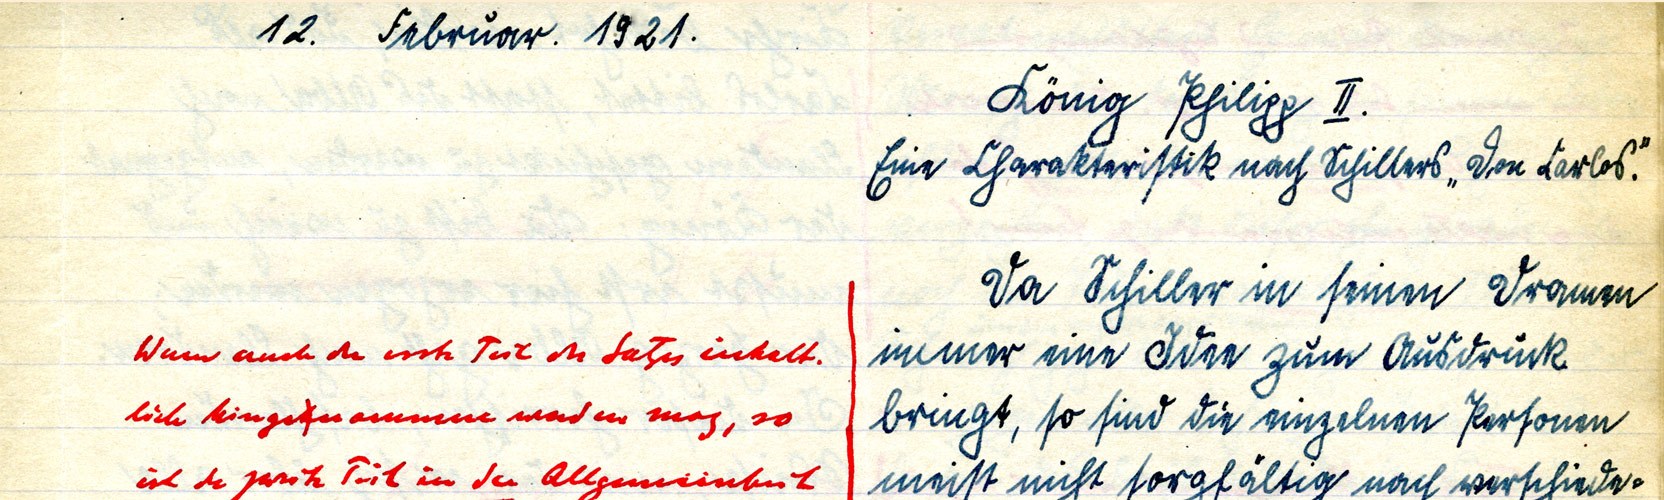 12. Februar. 1921.
König Philipp II.
Eine Charakteristik nach Schillers „Don Carlos."
Da Schiller in seinen Dramen
immer eine Idee zum Ausdruck
bringt, so sind die einzelnen Personen
meist nicht sorgfältig nach verschiede-
Wenn auch der erste Teil des Satzes inhalt-
lich hingenommen werden mag, so
ist der zweite Teil in der Allgemeinheit